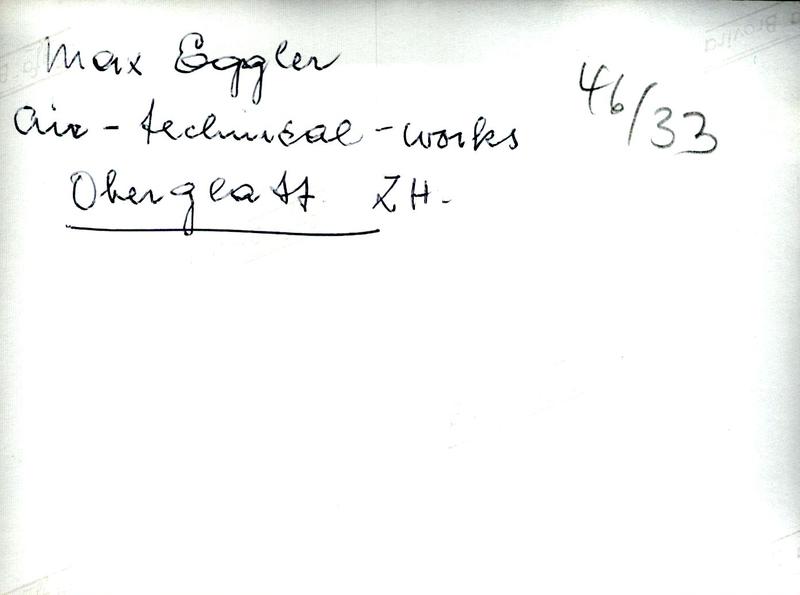 Max Eggler
46/33
air-technical-works
Oberglatt ZH.